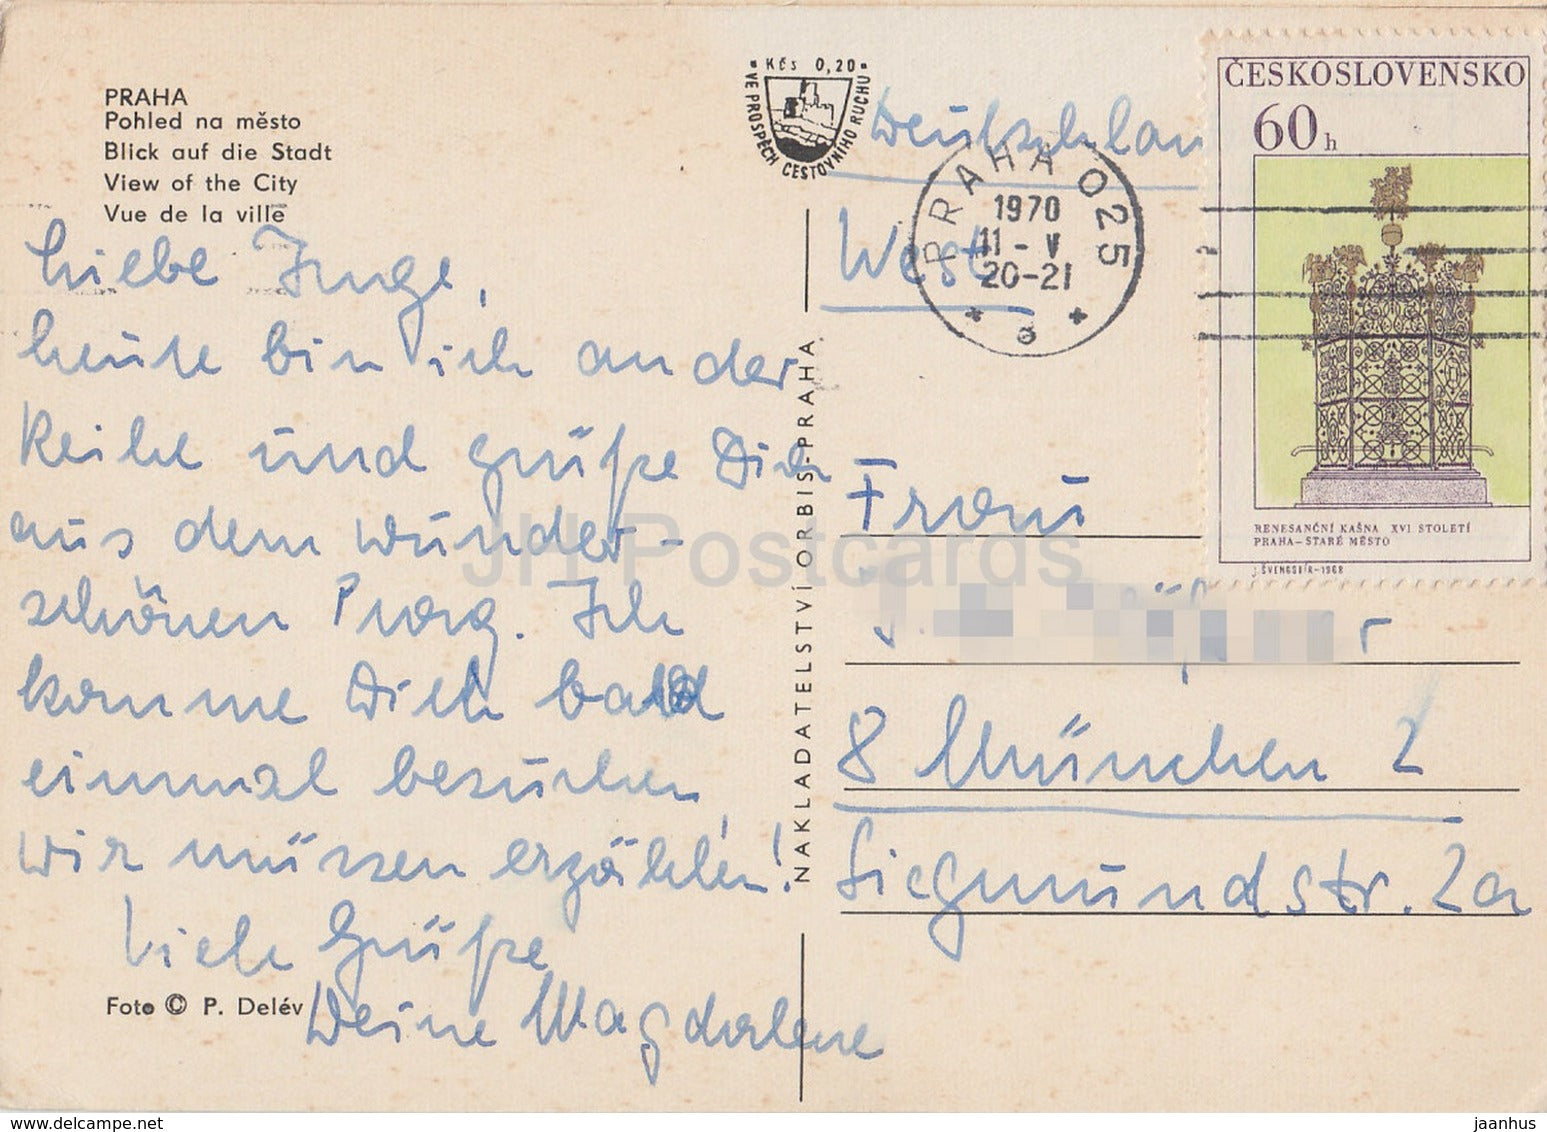 PRAHA
Pohled na město
Blick auf die Stadt
View of the City
Vue de la ville
Liebe Inge,
heute bin ich an der
Reihe und grüße Dich
aus dem wunder-
schönen Prag. Ich
komme Dich bald
einmal besuchen,
wir müssen erzählen!
Viele Grüße
Deine Magdalene
Foto © P. Delév
NAKLADATELSTVÍ ORBIS-PRAHA
Kčs 0,20
VE PROSPĚCH CESTOVNÍHO RUCHU
Deutschlan
West
PRAHA 025
1970
11-V
20-21
ČESKOSLOVENSKO
60h
RENESANČNÍ KAŠNA XVI STOLETÍ
PRAHA-STARÉ MĚSTO
J. ŠVENGSBÍR-1968
Frau
8 München 2
Siegmundstr. 2a
JH Postcards
www.delcampe.net
jaanhus